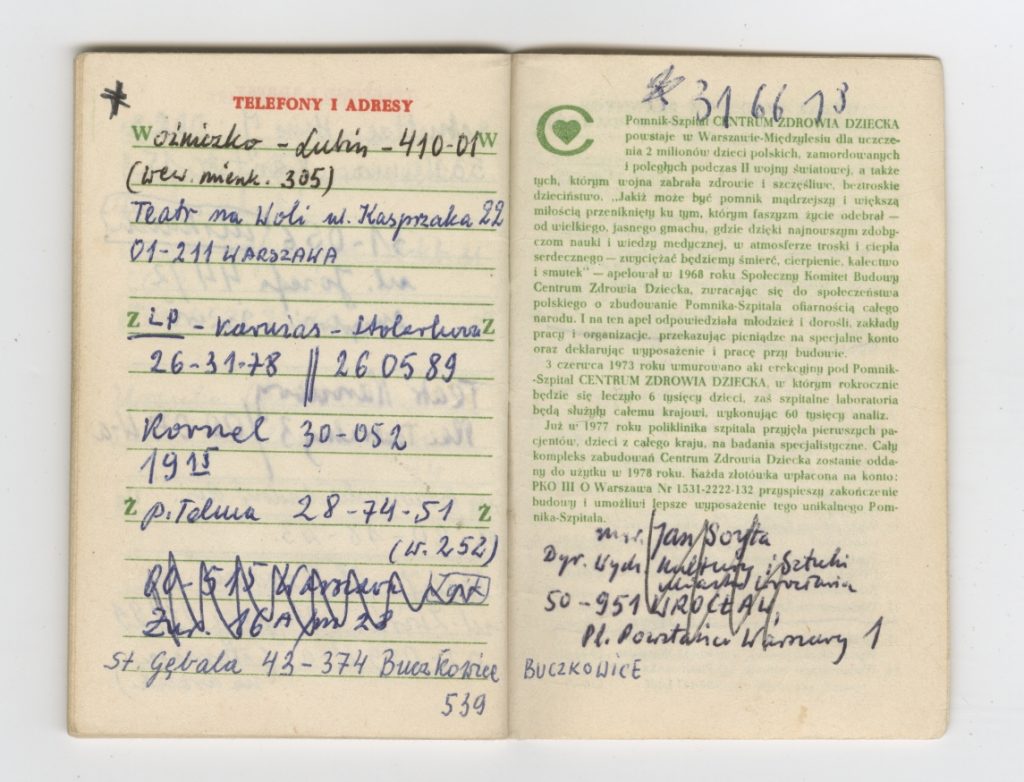 TELEFONY I ADRESY
Woźniczko - Lubin - 410-01 W
(wew. mienk. 305)
Teatr na Woli ul. Kasprzaka 22
01-211 WARSZAWA
Z LP - Z
26-31-78 || 26 05 89
Kornel 30-052
19 15
Ż p. Telma 28-74-51 Ż
(w. 252)
515 Warszawa
16A m 28
St. Gębala 43-374 Buczkowice
539
31 66 13
Pomnik-Szpital CENTRUM ZDROWIA DZIECKA
powstaje w Warszawie-Międzylesiu dla uczcze-
nia 2 milionów dzieci polskich, zamordowanych
i poległych podczas II wojny światowej, a także
tych, którym wojna zabrała zdrowie i szczęśliwe, beztroskie
dzieciństwo. „Jakiż może być pomnik mądrzejszy i większą
miłością przeniknięty ku tym, którym faszyzm życie odebrał —
od wielkiego, jasnego gmachu, gdzie dzięki najnowszym zdoby-
czom nauki i wiedzy medycznej, w atmosferze troski i ciepła
serdecznego — zwyciężać będziemy śmierć, cierpienie, kalectwo
i smutek" — apelował w 1968 roku Społeczny Komitet Budowy
Centrum Zdrowia Dziecka, zwracając się do społeczeństwa
polskiego o zbudowanie Pomnika-Szpitala ofiarnością całego
narodu. I na ten apel odpowiedziała młodzież i dorośli, zakłady
pracy i organizacje, przekazując pieniądze na specjalne konto
oraz deklarując wyposażenie i pracę przy budowie.
3 czerwca 1973 roku wmurowano akt erekcyjny pod Pomnik-
-Szpital CENTRUM ZDROWIA DZIECKA, w którym rokrocznie
będzie się leczyło 6 tysięcy dzieci, zaś szpitalne laboratoria
będą służyły całemu krajowi, wykonując 60 tysięcy analiz.
Już w 1977 roku poliklinika szpitala przyjęła pierwszych pa-
cjentów, dzieci z całego kraju, na badania specjalistyczne. Cały
kompleks zabudowań Centrum Zdrowia Dziecka zostanie odda-
ny do użytku w 1978 roku. Każda złotówka wpłacona na konto:
PKO III O Warszawa Nr 1531-2222-132 przyspieszy zakończenie
budowy i umożliwi lepsze wyposażenie tego unikalnego Pom-
nika-Szpitala.
mgr. Jan
Dyr. Wydz. Kultury i Sztuki
Miasta Wrocławia
50-951 WROCŁAW
Pl. Powstańców Warszawy 1
BUCZKOWICE